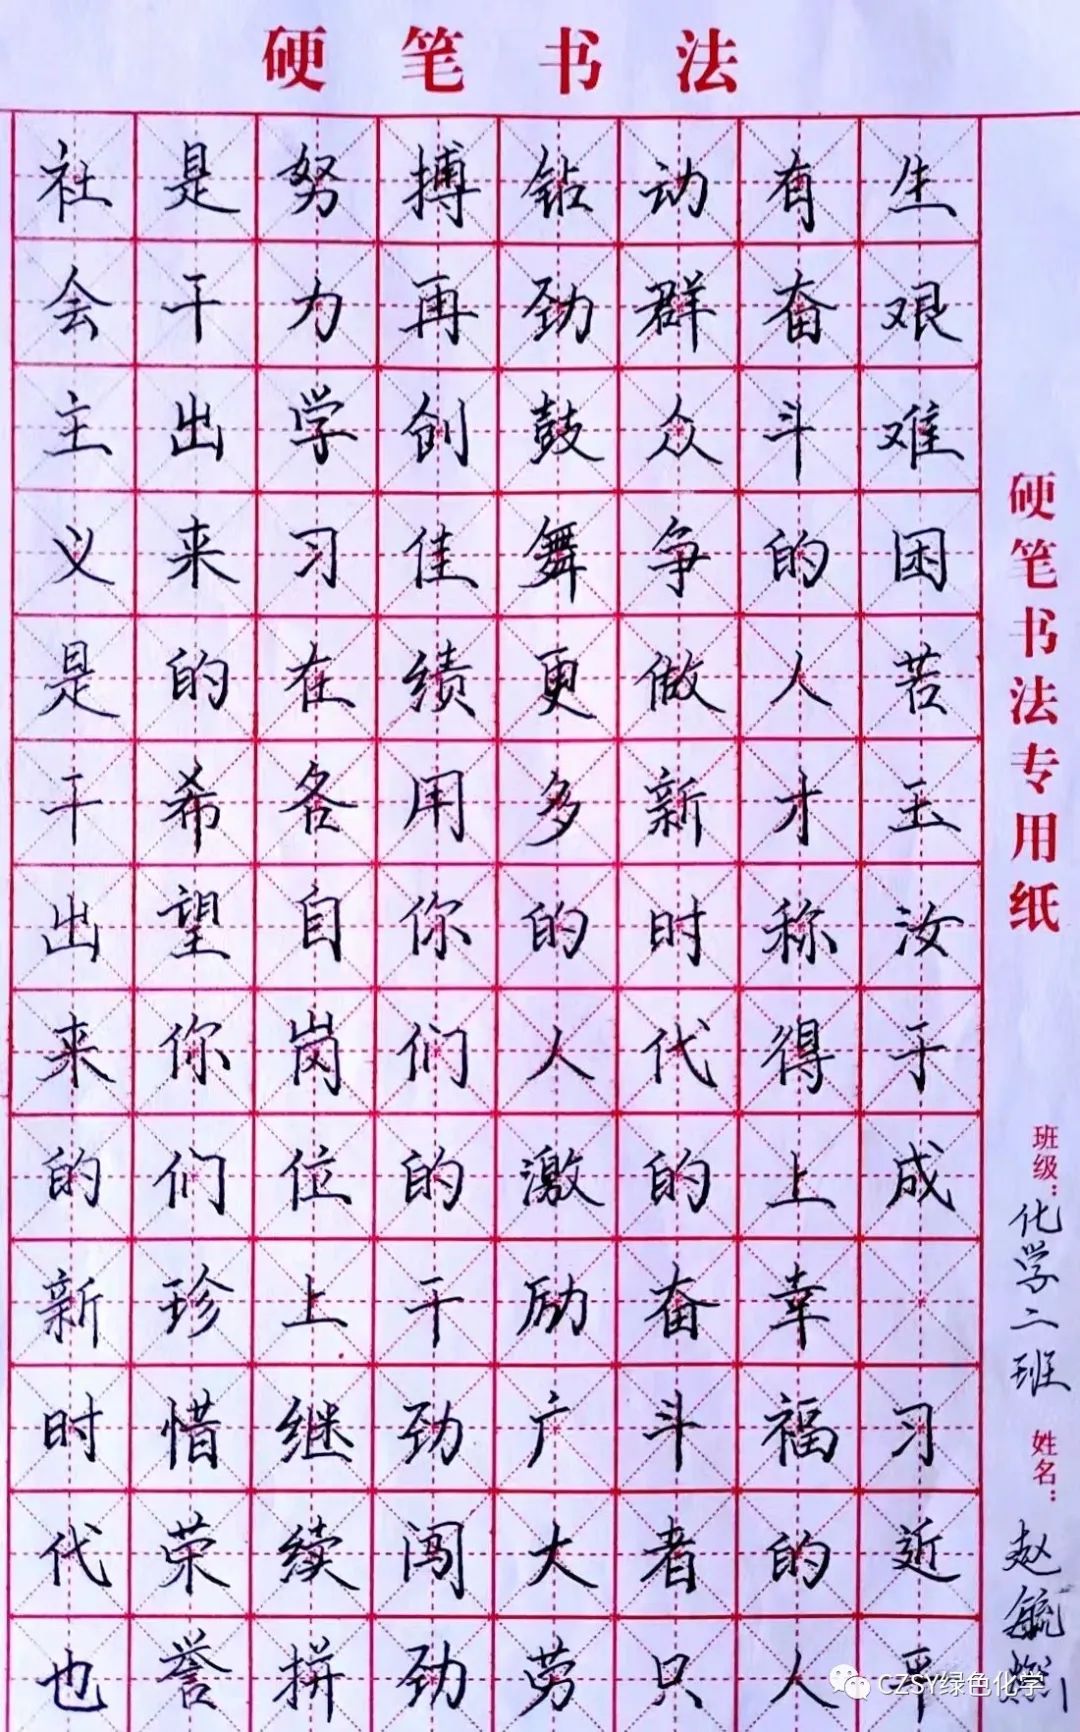 硬笔书法
社会主义是干出来的新时代也
是干出来的希望你们珍惜荣誉
努力学习在各自岗位上继续拼
搏再创佳绩用你们的干劲闯劲
钻劲鼓舞更多的人激励广大劳
动群众争做新时代的奋斗者只
有奋斗的人才称得上幸福的人
生艰难困苦玉汝于成 习近平
硬笔书法专用纸
班级：化学二班 姓名：赵毓
CZSY绿色化学